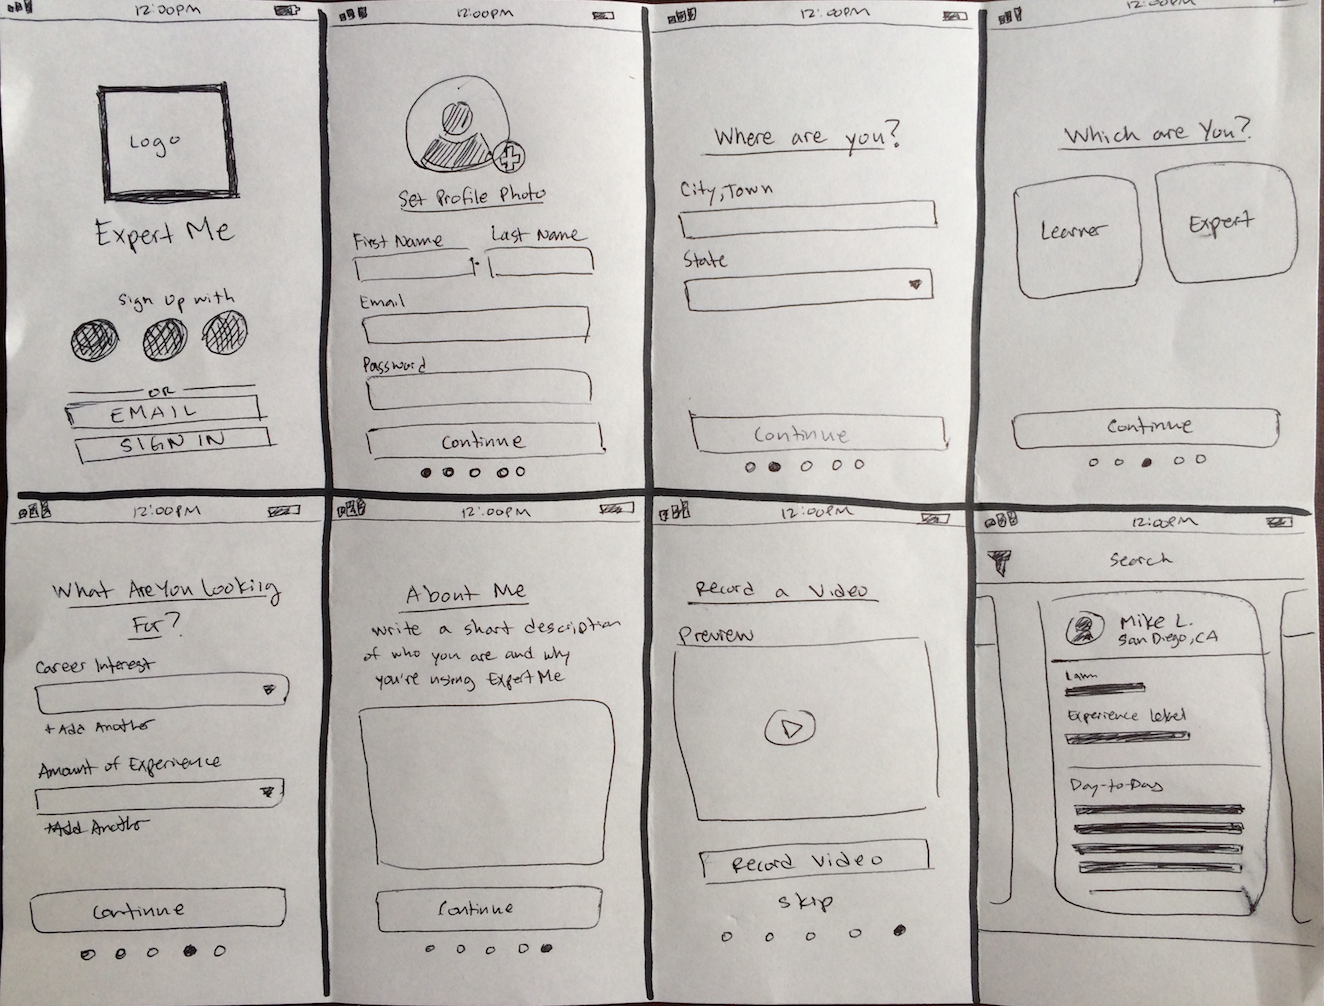 12:00PM
Logo
Expert Me
Sign Up with
OR
EMAIL
SIGN IN
12:00PM
Set Profile Photo
First Name
Last Name
Email
Password
Continue
12:00PM
Where are you?
City, Town
State
Continue
12:00PM
Which are You?
Learner
Expert
Continue
12:00PM
What Are You Looking
For?
Career Interest
+ Add Another
Amount of Experience
+Add Another
Continue
12:00PM
About Me
write a short description
of who you are and why
you're using Expert Me
Continue
12:00PM
Record a Video
Preview
Record Video
Skip
12:00PM
Search
Mike L.
San Diego, CA
Experience Level
Day-to-Day